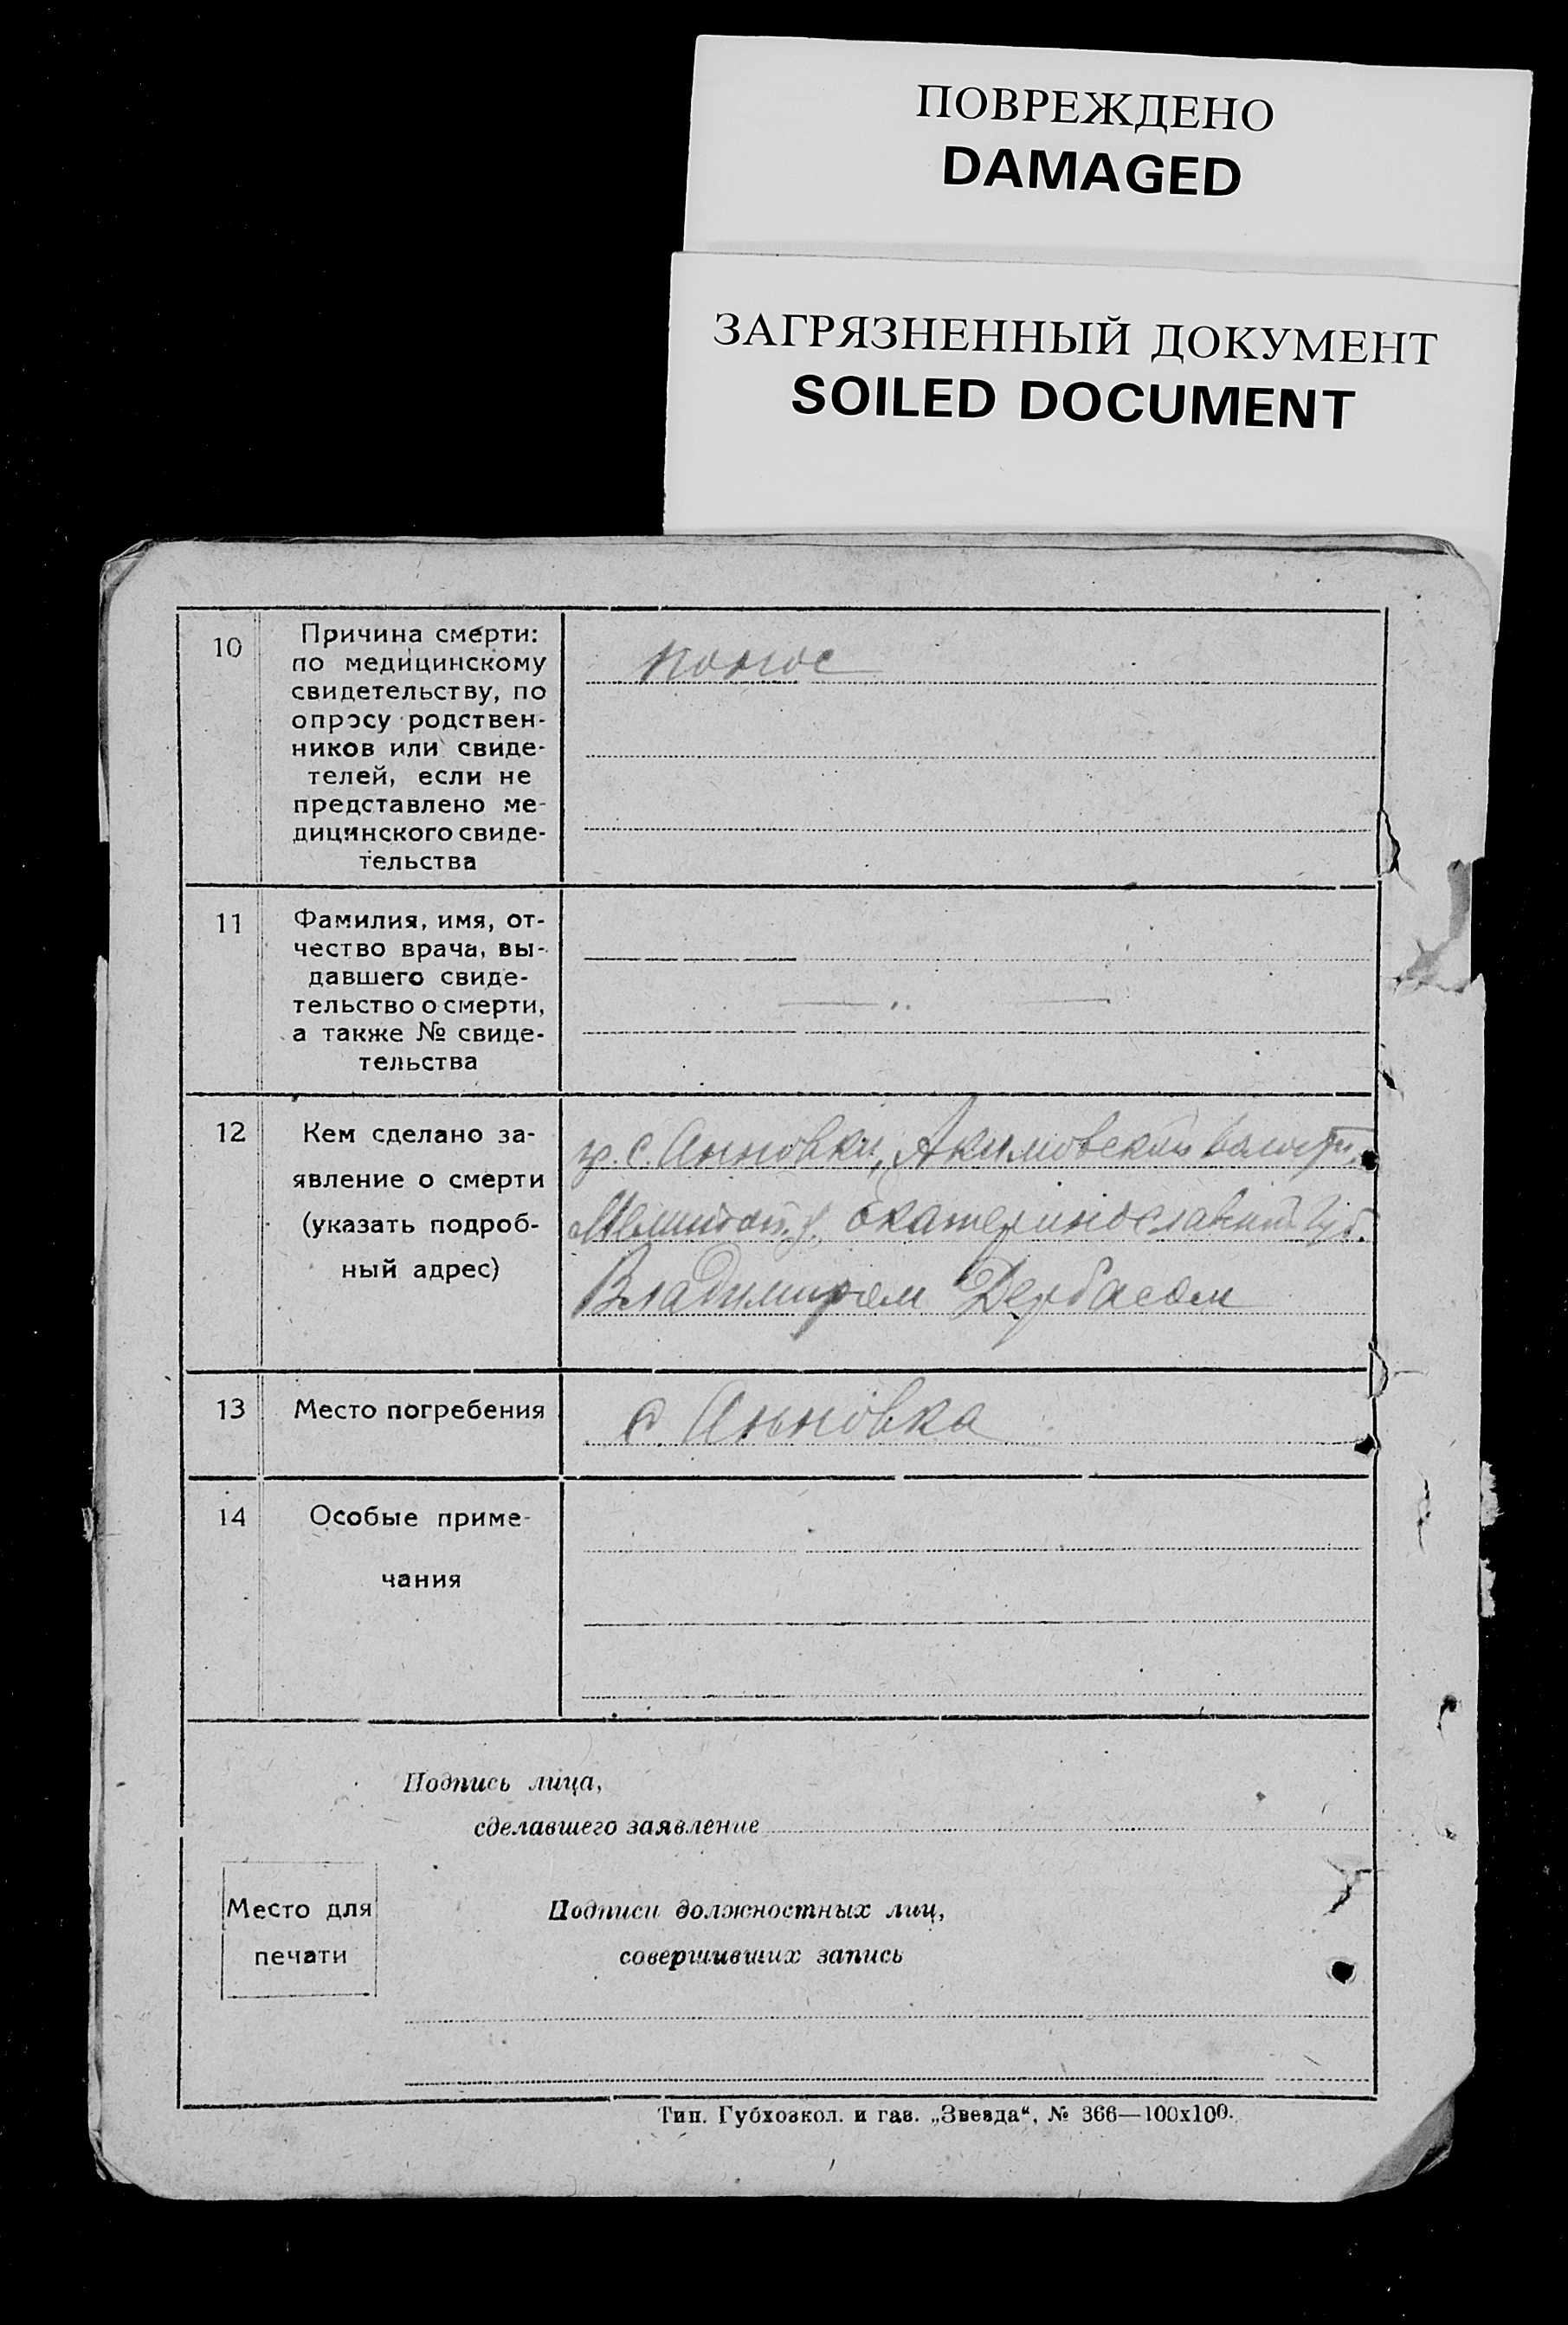 ПОВРЕЖДЕНО
DAMAGED
ЗАГРЯЗНЕННЫЙ ДОКУМЕНТ
SOILED DOCUMENT
10
Причина смерти:
по медицинскому
свидетельству, по
опросу родствен-
ников или свиде-
телей, если не
представлено ме-
дицинского свиде-
тельства
понос
11
Фамилия, имя, от-
чество врача, вы-
давшего свиде-
тельство о смерти,
а также № свиде-
тельства
12
Кем сделано за-
явление о смерти
(указать подроб-
ный адрес)
гр. с. Анновки, Акимовской волости
Мелитоп. у. Екатеринославской Губ.
Владимиром Дербасом
13
Место погребения
с. Анновка
14
Особые приме-
чания
Подпись лица,
сделавшего заявление
Место для
печати
Подписи должностных лиц,
совершивших запись
Тип. Губхозкол. и газ. „Звезда“, № 366—100х100.